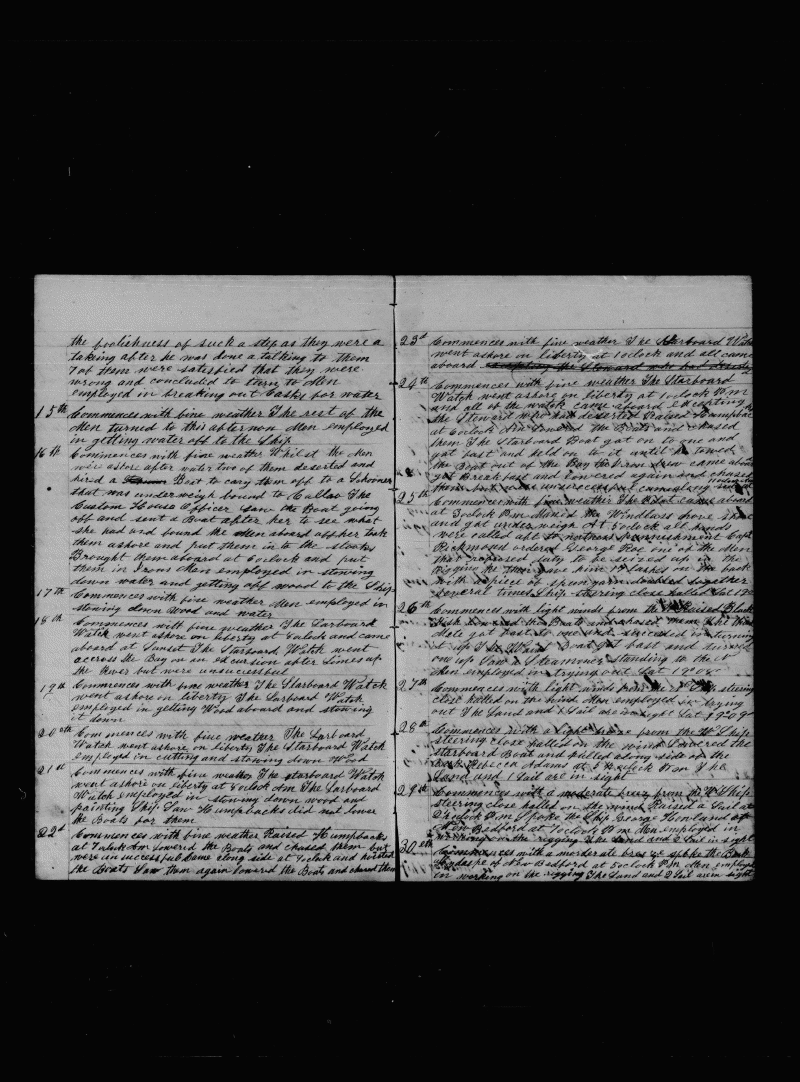 the foolishness of such a step as they were a
taking after he was done a talking to them
7 of them were satisfied that they were
wrong and concluded to turn to Men
employed in breaking out Casks for water
15th Commences with fine weather The rest of the
Men turned to this afternoon Men employed
in getting water off to the Ship
16th Commences with fine weather Whilst the Men
were ashore after water two of them deserted and
hired a Boat to cary them off to a Schooner
that was underweigh bound to Callao The
Custom House Officer saw the Boat going
off and sent a Boat after her to see what
she had and found the Men aboard of her took
them ashore and put them in to the
Brought them aboard at 6 oclock and put
them in Irons Men employed in stowing
down water and getting off wood to the Ship
17th Commences with fine weather Men employed in
stowing down Wood and water
18th Commences with fine weather The Larboard
Watch went ashore on liberty at 8 oclock and came
aboard at Sunset The Starboard Watch went
across the Bay on an excursion after Limes up
the River but were unsuccessful
19th Commences with fine weather The Starboard Watch
went ashore on liberty The Larboard Watch
employed in getting Wood aboard and stowing
it down
20th Commences with fine weather The Larboard
Watch went ashore on liberty The Starboard Watch
employed in cutting and stowing down Wood
21st Commences with fine weather The starboard Watch
went ashore on liberty at 8 oclock Am The Larboard
Watch employed in stowing down wood and
painting Ship Saw Humpbacks did not lower
the Boats for them
22d Commences with fine weather Raised Humpbacks
at 7 oclock Am lowered the Boats and chased them but
were unsuccessful Came along side at 9 oclock and hoisted
the Boats Saw them again lowered the Boats and chased them
23d Commences with fine weather The Starboard Watch
went ashore on liberty at 1 oclock and all came
aboard excepting the Steward who had
24th Commences with fine weather The Starboard
Watch went ashore on liberty at 1 oclock P.m
and all of the watch came aboard excepting
the Steward who had deserted Raised Humpbacks
at 6 oclock Am lowered the Boats and chased
them The Starboard Boat got on to one and
got fast and held on to it until he towed
the Boat out of the Bay came aboard
got Breakfast and lowered again and chased
them but were unsuccessful
25th Commences with fine weather The Pilot came aboard
at 3 oclock P.m Mened the Windlass hove short
and got under weigh At 5 oclock all hands
were called aft to witness punishment Capt
Richmond ordered George Roe one of the Men
that refused duty to be seized up in the
Riging he then gave him 17 lashes on the back
with a piece of spun yarn doubled together
several times Ship steering close halled Lat
26th Commences with light winds from the Raised Black
Fish lowered the Boats and chased them the
Mate got fast to one and succeeded in turning
it up The Waist Boat got fast and turned
one up Saw a Steammer standing to the
Men employed in trying out Lat
27th Commences with light winds from the Ship steering
close halled on the wind Men employed in trying
out The Land and 1 Sail are in sight Lat
28th Commences with a light breeze from the W Ship
steering close halled on the wind Lowered the
starboard Boat and pulled along side of the
Bark Rebeca Adams at oclock P.m The
Land and 1 Sail are in sight
29th Commences with a moderate breeze from W Ship
steering close halled on the wind Raised a Sail at
2 oclock P.m Spoke the Ship George Howland of
New Bedford at 7 oclock P.m Men employed in
working on the rigging The Land and 2 Sail in sight
30th Commences with a morderate breeze spoke the Bark
of New Bedford at 6 oclock P.m Men employed
in working on the rigging The Land and 2 Sail are in sight